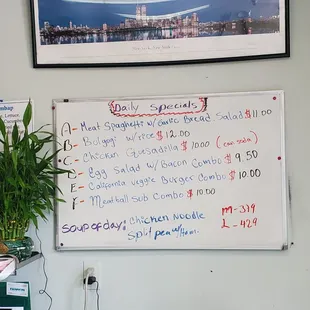 Daily Specials
A- Meat Spaghetti w/Garlic Bread Salad $11.00
B- Bulgogi w/rice $12.00
C- Chicken Quesadilla $10.00 (can soda)
D- Egg Salad w/ Bacon Combo $9.50
E- California veggie Burger Combo $10.00
F- Meatball sub Combo $10.00
SOUP of day: Chicken Noodle M-379
Split pea w/Ham L-429